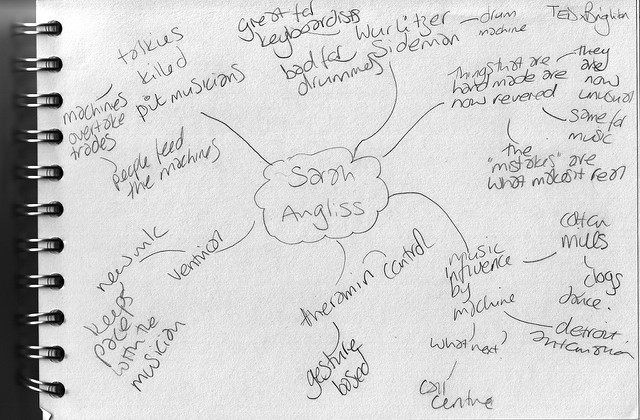 TEDxBrighton
Sarah
Angliss
great for
keyboardists
bad for
drummers
Wurlitzer
Sideman
drum
machine
things that are
hand made are
now revered
they
are
now
unusual
same for
music
the
"mistakes" are
what makes it real
music
influence
by
machine
cotton
mills
clogs
dance.
detroit
what next?
call
centre
theramin control
gesture
based
ventricol
new mk
keeps
pace
with the
musician
talkies
killed
pit musicians
machines
overtake
trades
people feed
the machines